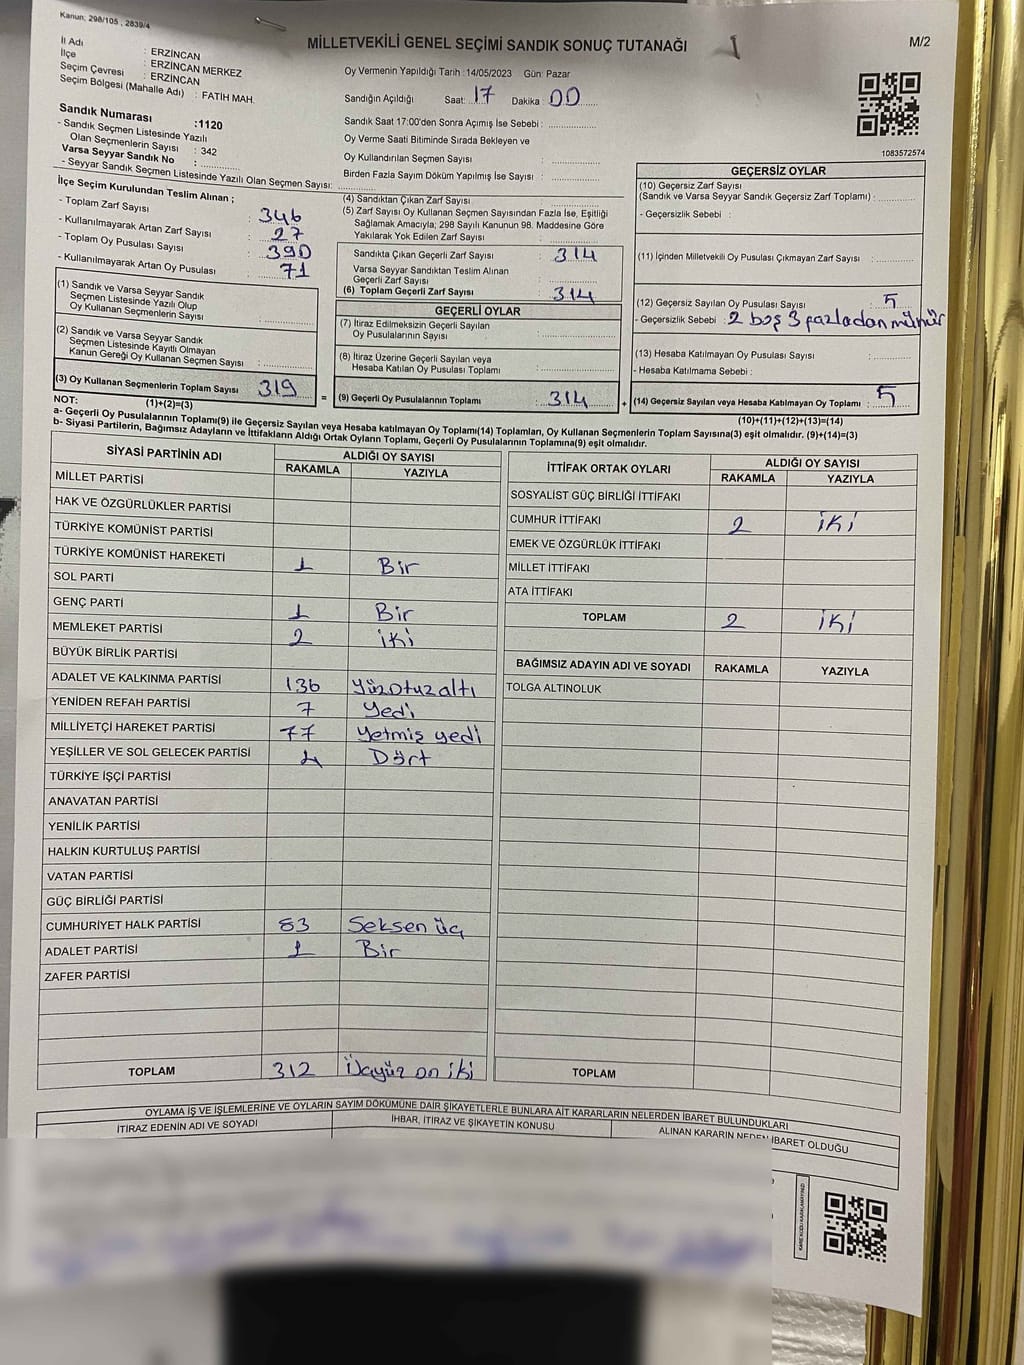 Kanun; 298/105 , 2839/4
MİLLETVEKİLİ GENEL SEÇİMİ SANDIK SONUÇ TUTANAĞI
M/2
İl Adı : ERZİNCAN
İlçe : ERZİNCAN MERKEZ
Seçim Çevresi : ERZİNCAN
Seçim Bölgesi (Mahalle Adı) : FATIH MAH.
Sandık Numarası :1120
- Sandık Seçmen Listesinde Yazılı
Olan Seçmenlerin Sayısı : 342
Varsa Seyyar Sandık No :
- Seyyar Sandık Seçmen Listesinde Yazılı Olan Seçmen Sayısı:
Oy Vermenin Yapıldığı Tarih :14/05/2023 Gün: Pazar
Sandığın Açıldığı Saat: 17 Dakika : 00
Sandık Saat 17:00'den Sonra Açımış İse Sebebi :
Oy Verme Saati Bitiminde Sırada Bekleyen ve
Oy Kullandırılan Seçmen Sayısı :
Birden Fazla Sayım Döküm Yapılmış İse Sayısı :
1083572574
İlçe Seçim Kurulundan Teslim Alınan ;
- Toplam Zarf Sayısı : 346
- Kullanılmayarak Artan Zarf Sayısı : 27
- Toplam Oy Pusulası Sayısı : 390
- Kullanılmayarak Artan Oy Pusulası : 71
(1) Sandık ve Varsa Seyyar Sandık
Seçmen Listesinde Yazılı Olup
Oy Kullanan Seçmenlerin Sayısı :
(2) Sandık ve Varsa Seyyar Sandık
Seçmen Listesinde Kayıtlı Olmayan
Kanun Gereği Oy Kullanan Seçmen Sayısı :
(3) Oy Kullanan Seçmenlerin Toplam Sayısı : 319
(1)+(2)=(3)
(4) Sandıktan Çıkan Zarf Sayısı :
(5) Zarf Sayısı Oy Kullanan Seçmen Sayısından Fazla İse, Eşitliği
Sağlamak Amacıyla; 298 Sayılı Kanunun 98. Maddesine Göre
Yakılarak Yok Edilen Zarf Sayısı :
Sandıkta Çıkan Geçerli Zarf Sayısı : 314
Varsa Seyyar Sandıktan Teslim Alınan
Geçerli Zarf Sayısı :
(6) Toplam Geçerli Zarf Sayısı : 314
GEÇERLİ OYLAR
(7) İtiraz Edilmeksizin Geçerli Sayılan
Oy Pusulalarının Sayısı :
(8) İtiraz Üzerine Geçerli Sayılan veya
Hesaba Katılan Oy Pusulası Toplamı :
= (9) Geçerli Oy Pusulalarının Toplamı : 314 +
GEÇERSİZ OYLAR
(10) Geçersiz Zarf Sayısı
(Sandık ve Varsa Seyyar Sandık Geçersiz Zarf Toplamı) :
- Geçersizlik Sebebi :
(11) İçinden Milletvekili Oy Pusulası Çıkmayan Zarf Sayısı :
(12) Geçersiz Sayılan Oy Pusulası Sayısı : 5
- Geçersizlik Sebebi : 2 boş 3 fazladan mühür
(13) Hesaba Katılmayan Oy Pusulası Sayısı :
- Hesaba Katılmama Sebebi :
(14) Geçersiz Sayılan veya Hesaba Katılmayan Oy Toplamı : 5
(10)+(11)+(12)+(13)=(14)
NOT:
a- Geçerli Oy Pusulalarının Toplamı(9) ile Geçersiz Sayılan veya Hesaba katılmayan Oy Toplamı(14) Toplamları, Oy Kullanan Seçmenlerin Toplam Sayısına(3) eşit olmalıdır. (9)+(14)=(3)
b- Siyasi Partilerin, Bağımsız Adayların ve İttifakların Aldığı Ortak Oyların Toplamı, Geçerli Oy Pusulalarının Toplamına(9) eşit olmalıdır.
SİYASİ PARTİNİN ADI ALDIĞI OY SAYISI
RAKAMLA YAZIYLA
MİLLET PARTİSİ
HAK VE ÖZGÜRLÜKLER PARTİSİ
TÜRKİYE KOMÜNİST PARTİSİ
TÜRKİYE KOMÜNİST HAREKETİ 1 Bir
SOL PARTİ
GENÇ PARTİ 1 Bir
MEMLEKET PARTİSİ 2 iki
BÜYÜK BİRLİK PARTİSİ
ADALET VE KALKINMA PARTİSİ 136 Yüzotuzaltı
YENİDEN REFAH PARTİSİ 7 Yedi
MİLLİYETÇİ HAREKET PARTİSİ 77 Yetmiş yedi
YEŞİLLER VE SOL GELECEK PARTİSİ 4 Dört
TÜRKİYE İŞÇİ PARTİSİ
ANAVATAN PARTİSİ
YENİLİK PARTİSİ
HALKIN KURTULUŞ PARTİSİ
VATAN PARTİSİ
GÜÇ BİRLİĞİ PARTİSİ
CUMHURİYET HALK PARTİSİ 83 Seksen üç
ADALET PARTİSİ 1 Bir
ZAFER PARTİSİ
TOPLAM 312 Üçyüz on iki
İTTİFAK ORTAK OYLARI ALDIĞI OY SAYISI
RAKAMLA YAZIYLA
SOSYALİST GÜÇ BİRLİĞİ İTTİFAKI
CUMHUR İTTİFAKI 2 iki
EMEK VE ÖZGÜRLÜK İTTİFAKI
MİLLET İTTİFAKI
ATA İTTİFAKI
TOPLAM 2 iki
BAĞIMSIZ ADAYIN ADI VE SOYADI RAKAMLA YAZIYLA
TOLGA ALTINOLUK
TOPLAM
OYLAMA İŞ VE İŞLEMLERİNE VE OYLARIN SAYIM DÖKÜMÜNE DAİR ŞİKAYETLERLE BUNLARA AİT KARARLARIN NELERDEN İBARET BULUNDUKLARI
İTİRAZ EDENİN ADI VE SOYADI İHBAR, İTİRAZ VE ŞİKAYETİN KONUSU ALINAN KARARIN NEDEN İBARET OLDUĞU